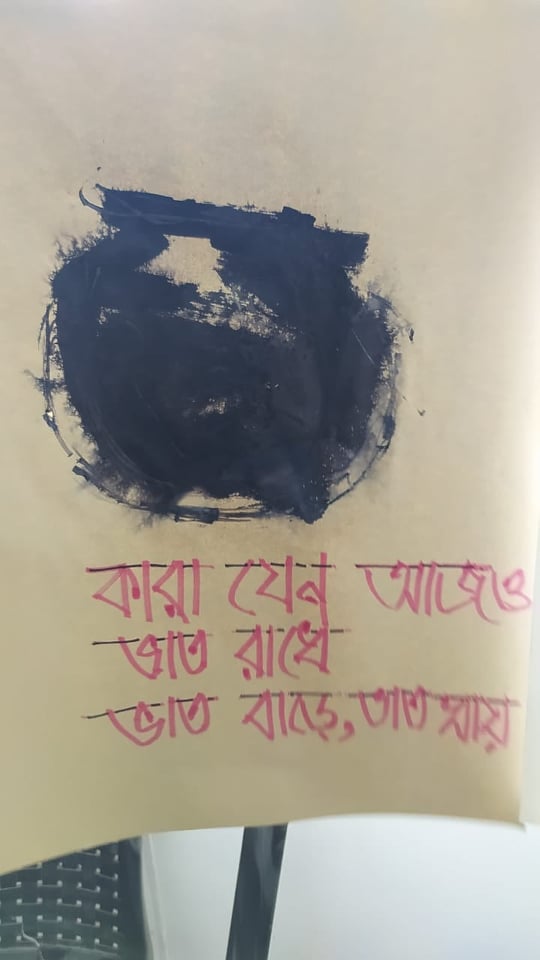 কারা যেন আজও
ভাত রাধে
ভাত বাড়ে, ভাত খায়